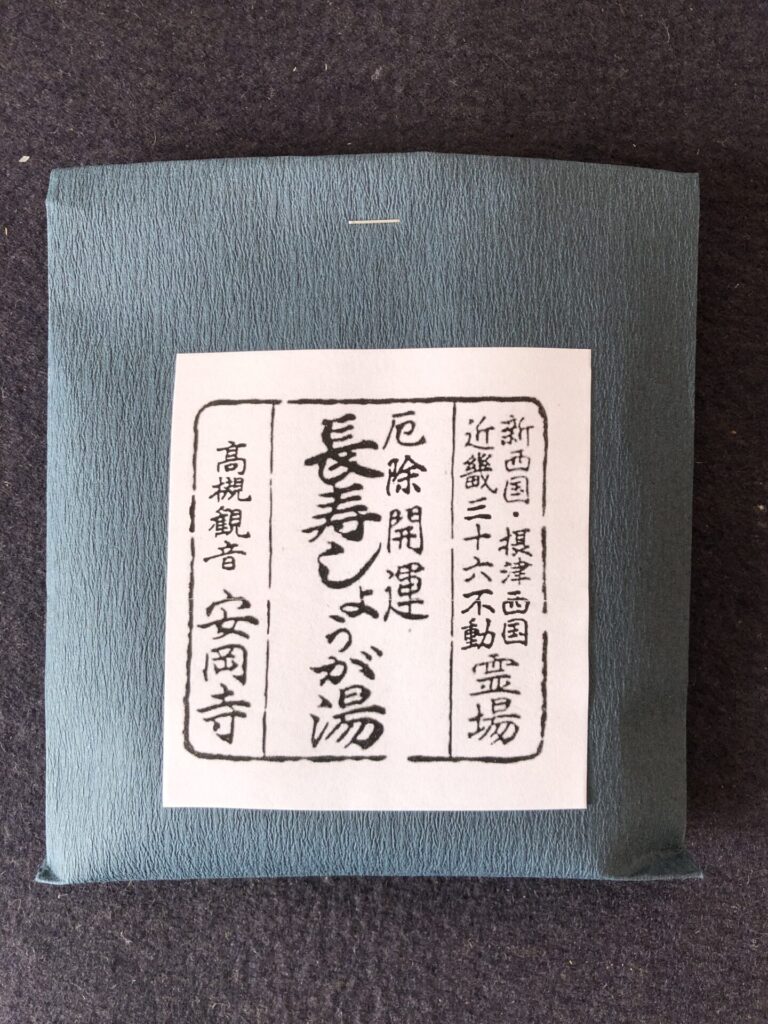 新西国・摂津西国
近畿三十六不動
霊場
厄除開運
長寿しょうが湯
高槻観音 安岡寺